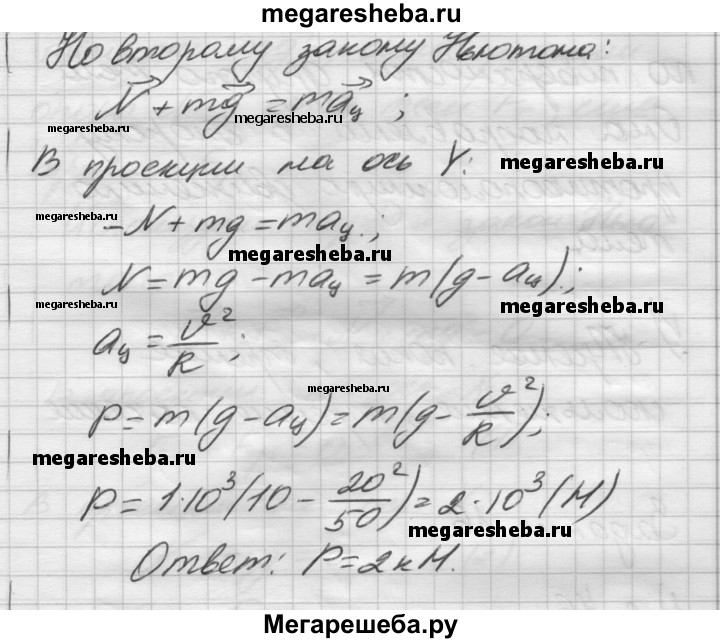 megaresheba.ru
По второму закону Ньютона:
N⃗ + mg⃗ = ma⃗ц ;
megaresheba.ru
megaresheba.ru
В проекции на ось Y:
megaresheba.ru
megaresheba.ru
-N + mg = maц.;
megaresheba.ru
N = mg - maц = m(g - aц).;
megaresheba.ru
megaresheba.ru
aц = v²/R ;
megaresheba.ru
P = m(g - aц) = m(g - v²/R);
megaresheba.ru
P = 1·10³(10 - 20²/50) = 2·10³ (Н)
megaresheba.ru
Ответ: P = 2кН.
Мегарешеба.ру